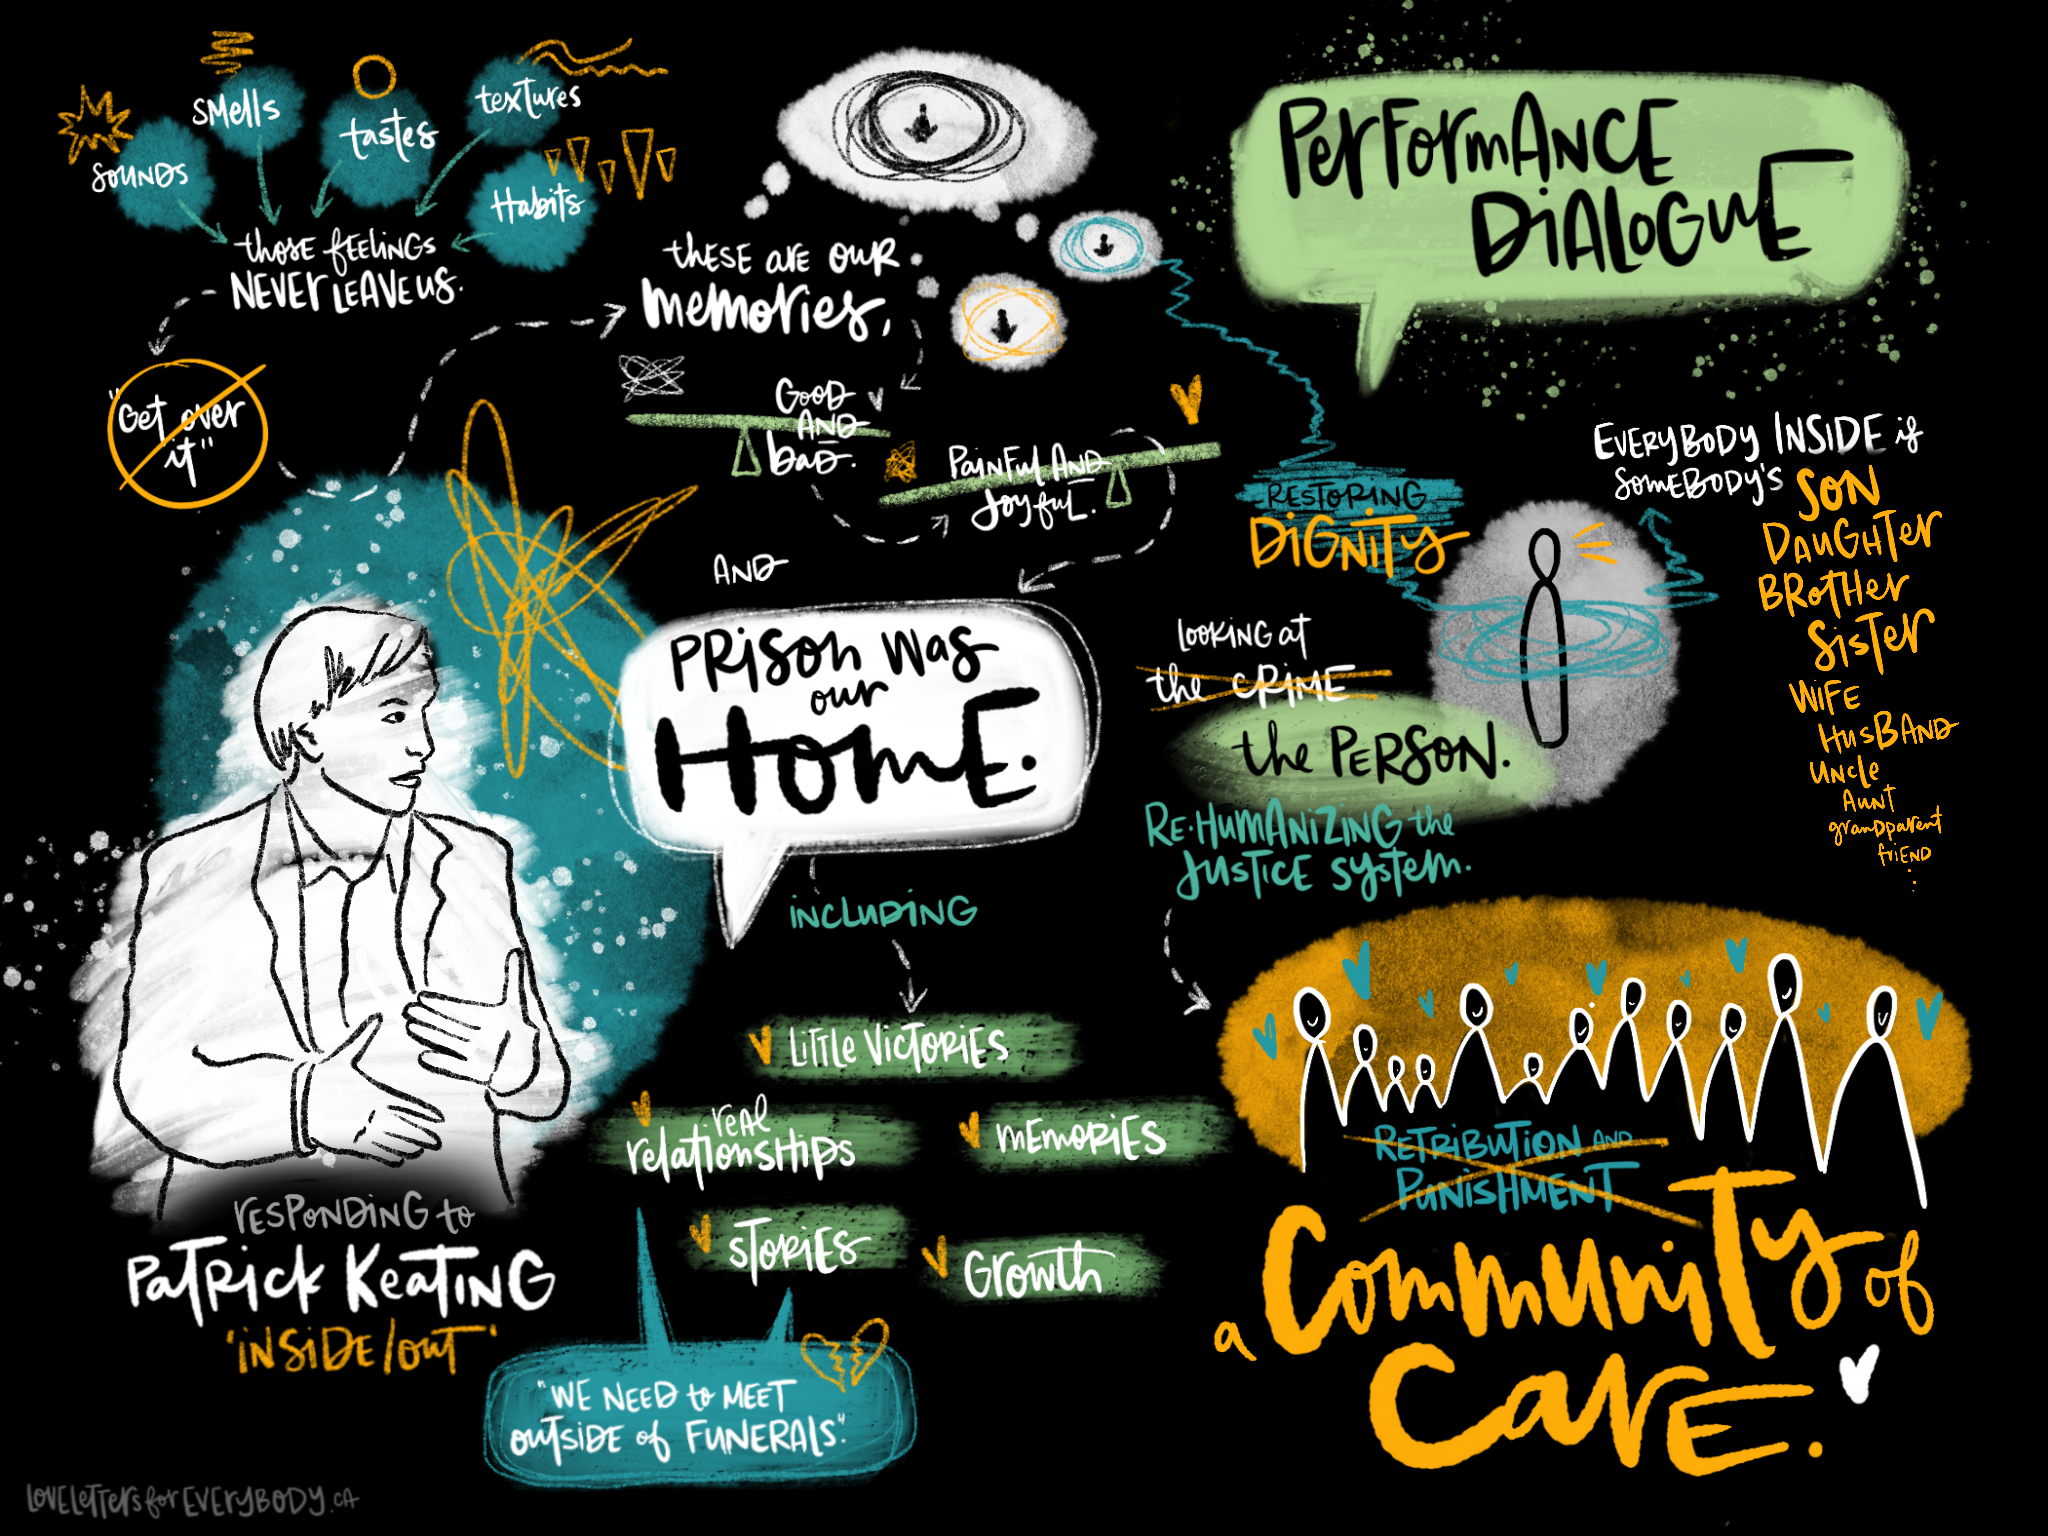 PERFORMANCE
DIALOGUE
SOUNDS
SMELLS
tastes
textures
Habits
those feelings
NEVER LEAVE US.
"Get over
it"
these are our
memories,
GOOD
AND
bad.
Painful AND
Joyful.
AND
PRISON WAS
our
HOME.
INCLUDING
LITTLE VICTORIES
real
relationships
MEMORIES
STORIES
GROWTH
"WE NEED to MEET
outside of FUNERALS."
RESPONDING to
PATRICK KEATING
'INSIDE/OUT'
RESTORING
DIGNITY
LOOKING at
the CRIME
the PERSON.
RE·HUMANIZING the
JUSTICE system.
EVERYBODY INSIDE if
SOMEBODY'S
SON
DAUGHTER
BROTHER
SISTER
WIFE
HUSBAND
UNCLE
AUNT
grandparent
friend
RETRIBUTION AND
PUNISHMENT
a COMMUNITY of
CARE.
LOVELETTERSforEVERYBODY.CA